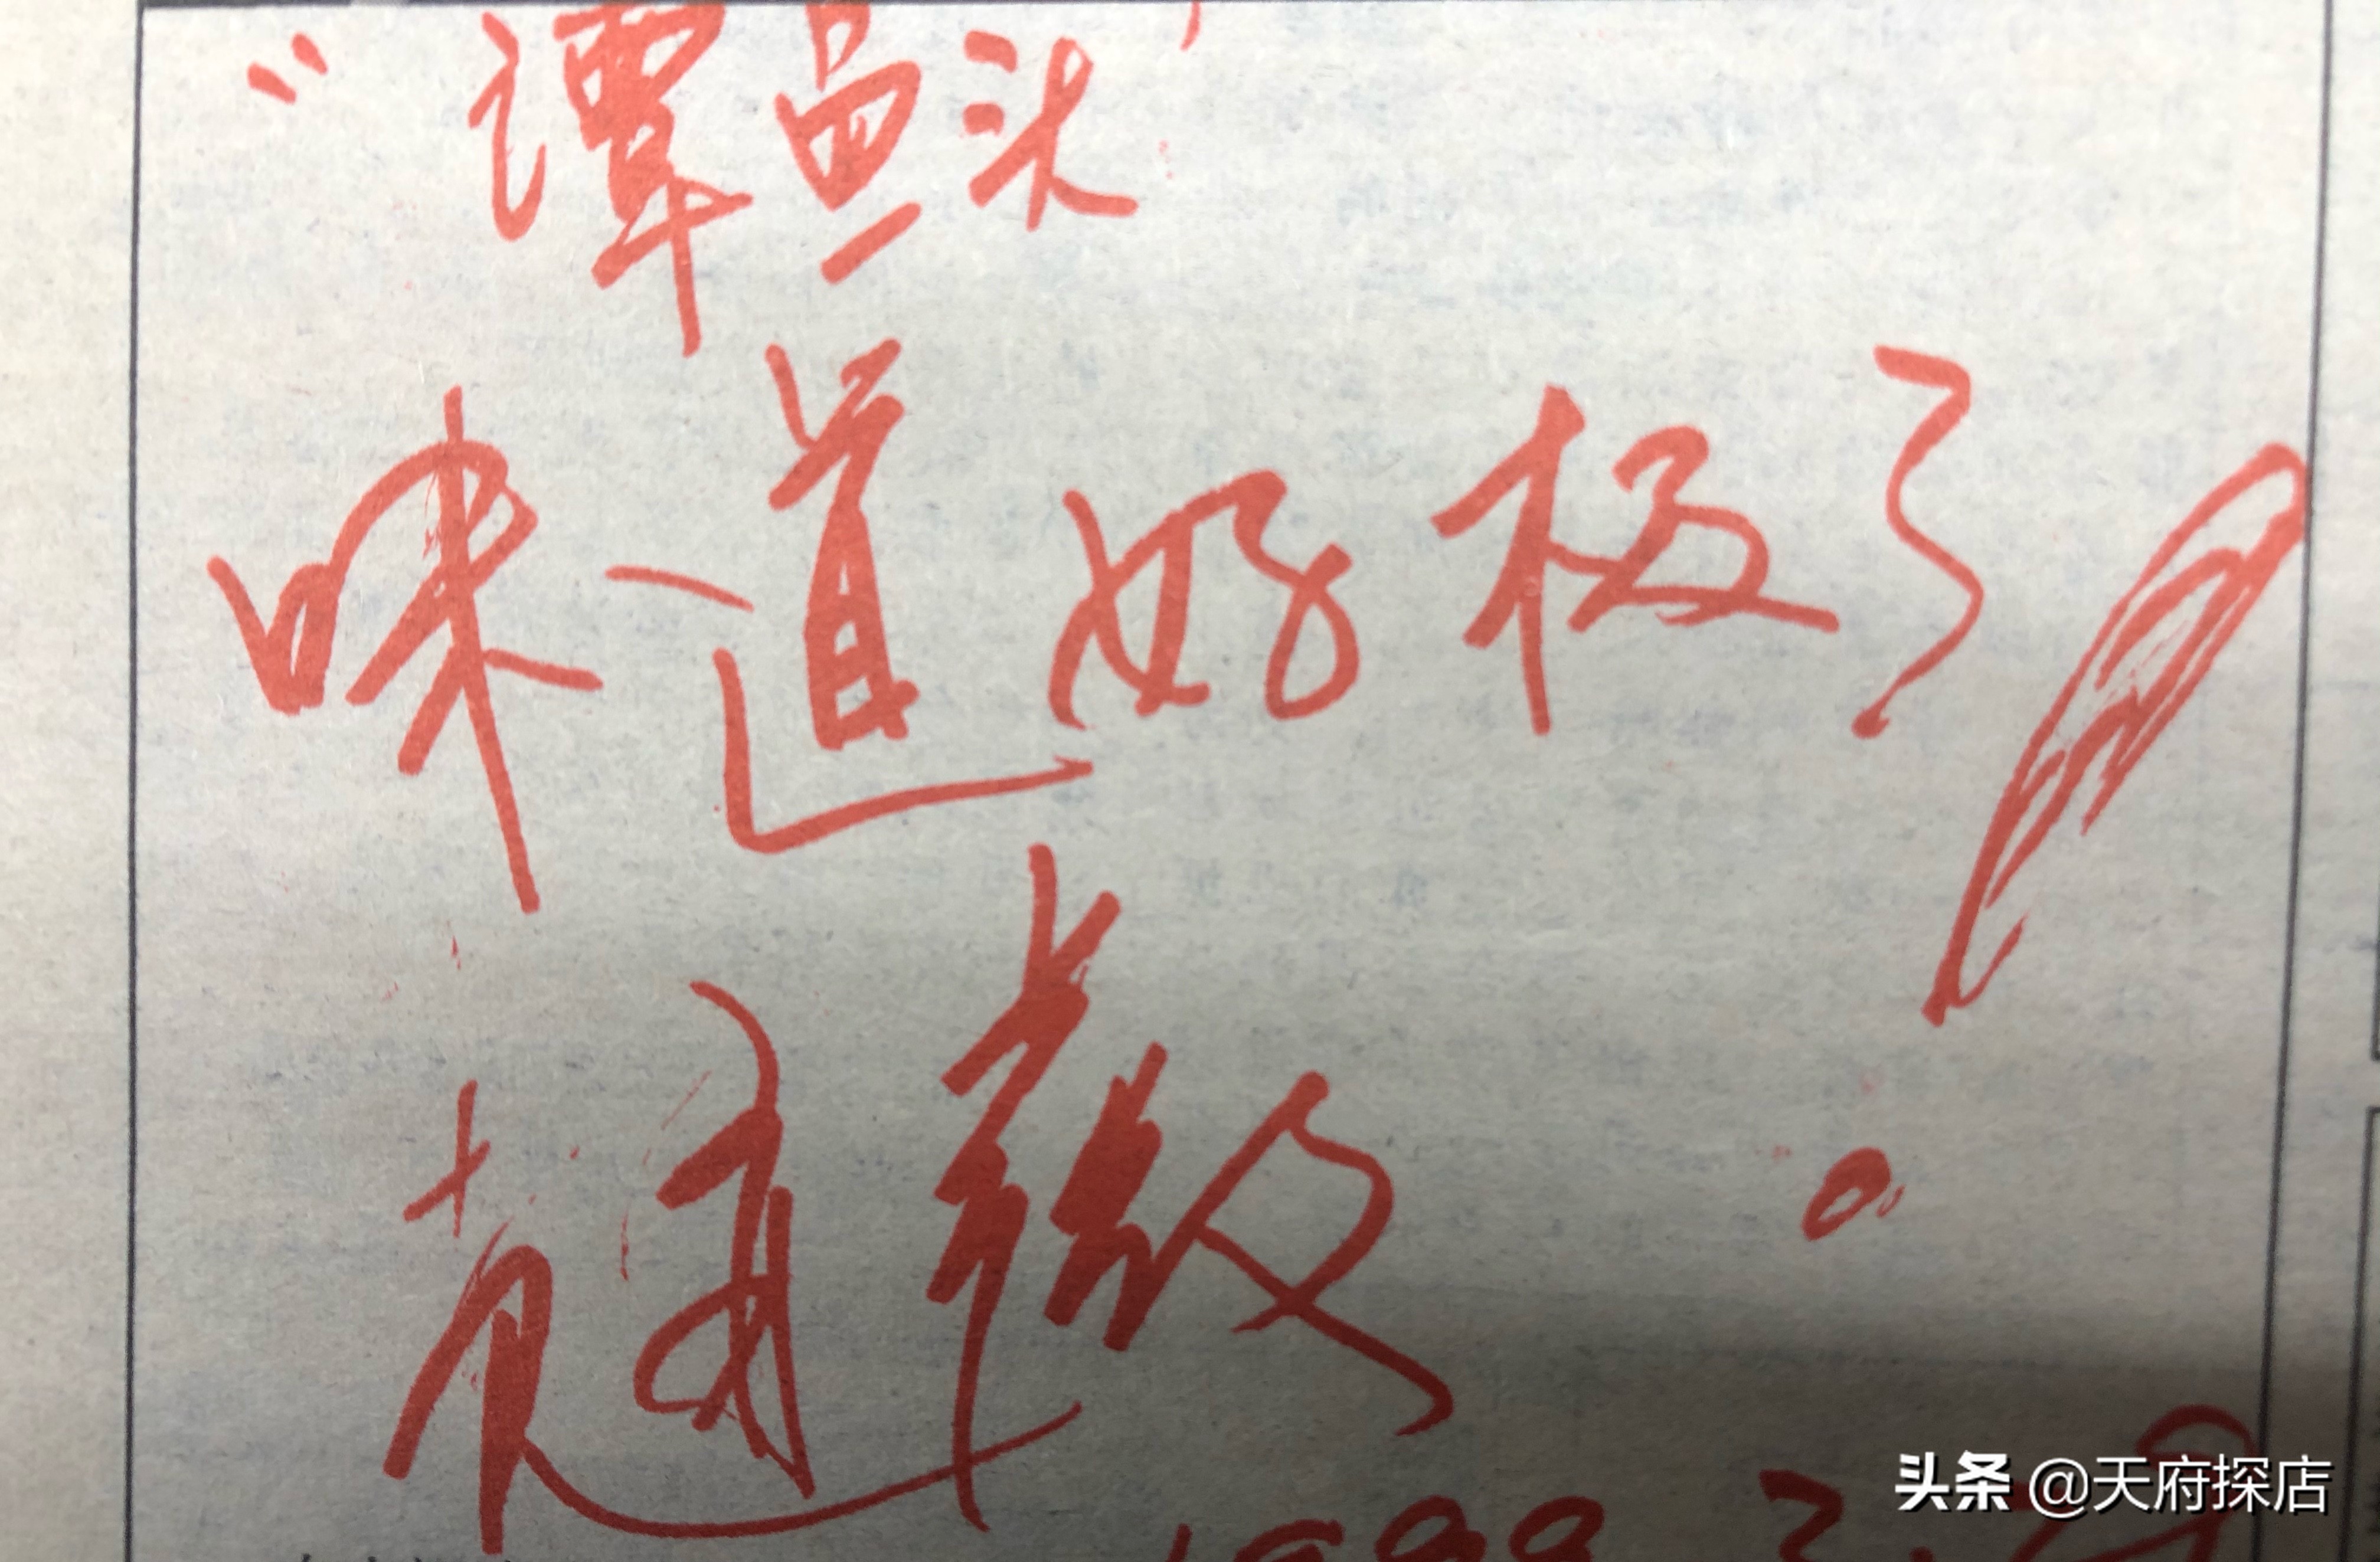 “谭鱼头”
味道好极了!
赵薇
头条 @天府探店